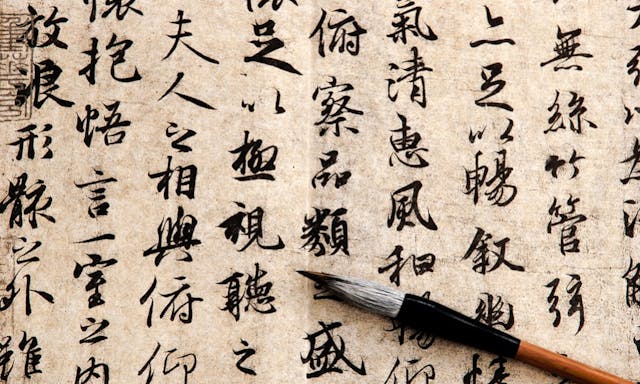 以為流
無絲竹管弦
亦足以暢叙幽情
氣清惠風和暢仰
俯察品類之盛
懷足以極視聽之
夫人之相與俯仰
懷抱悟言一室之内
放浪形骸之外雖